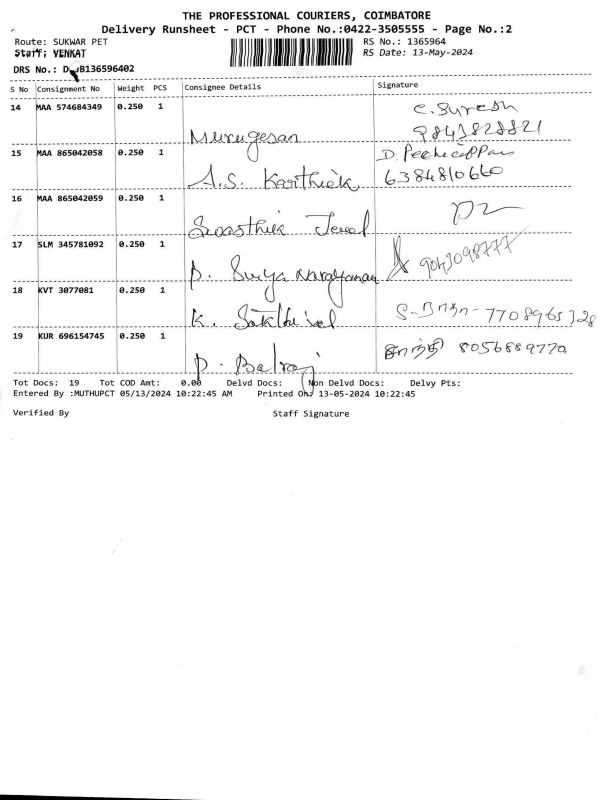 THE PROFESSIONAL COURIERS, COIMBATORE
Delivery Runsheet - PCT - Phone No.:0422-3505555 - Page No.:2
Route: SUKWAR PET RS No.: 1365964
Staff: VENKAT RS Date: 13-May-2024
DRS No.: B136596402
S No Consignment No Weight PCS Consignee Details Signature
14 MAA 574684349 0.250 1 C. Suresh
Murugesan 9843828821
15 MAA 865042058 0.250 1
A.S. Karthick 6384810660
16 MAA 865042059 0.250 1
Swasthick Jewel
17 SLM 345781092 0.250 1 9043098777
P. Surya Narayanan
18 KVT 3077081 0.250 1
K. Sakthivel 7708965328
19 KUR 696154745 0.250 1 8056889770
P. Balraj
Tot Docs: 19 Tot COD Amt: 0.00 Delvd Docs: Non Delvd Docs: Delvy Pts:
Entered By :MUTHUPCT 05/13/2024 10:22:45 AM Printed On: 13-05-2024 10:22:45
Verified By Staff Signature